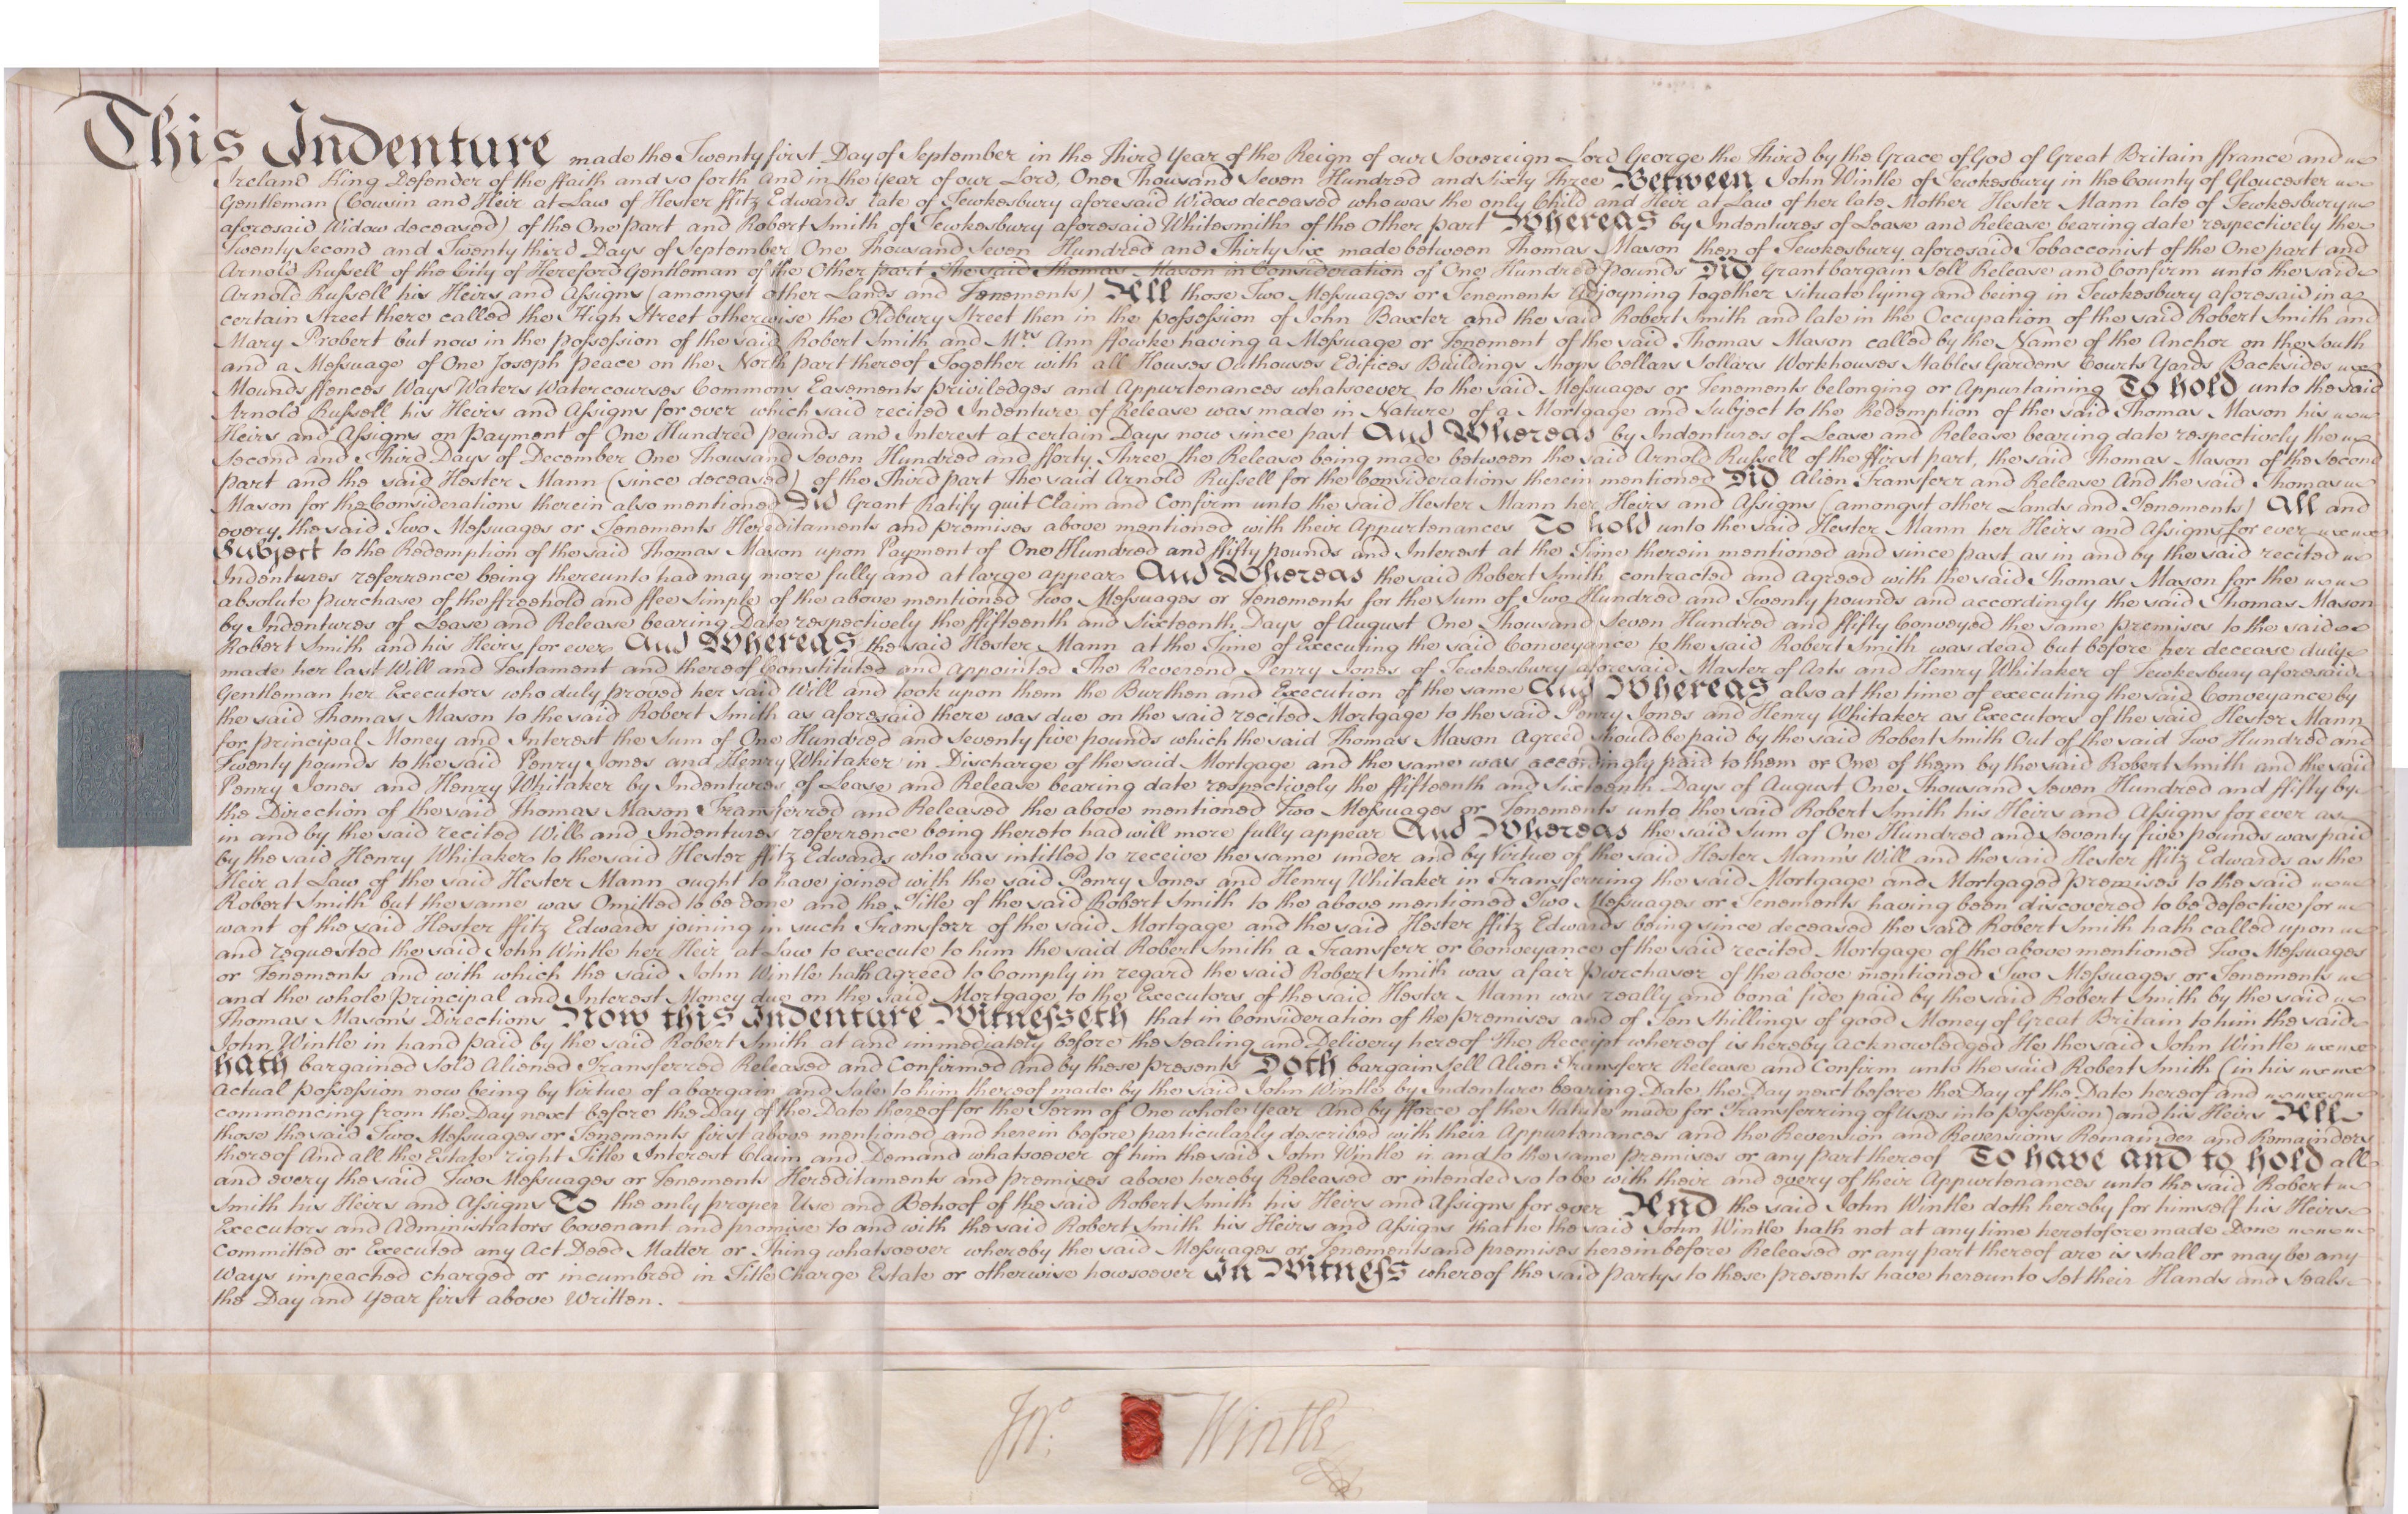 This Indenture made the Twenty first Day of September in the Third Year of the Reign of our Sovereign Lord George the Third by the Grace of God of Great Britain ffrance and
Ireland King Defender of the ffaith and so forth and in the Year of our Lord, One Thousand Seven Hundred and Sixty Three Between John Wintle of Tewkesbury in the County of Gloucester
Gentleman (Cousin and Heir at Law of Hester ffitz Edwards late of Tewkesbury aforesaid Widow deceased who was the only Child and Heir at Law of her late Mother Hester Mann late of Tewkesbury
aforesaid Widow deceased) of the One part and Robert Smith of Tewkesbury aforesaid Whitesmith of the Other part Whereas by Indentures of Lease and Release bearing date respectively the
Twenty Second and Twenty third Days of September One Thousand Seven Hundred and Thirty Six made between Thomas Mason then of Tewkesbury aforesaid Tobacconist of the One part and
Arnold Russell of the City of Hereford Gentleman of the Other part The said Thomas Mason in Consideration of One Hundred Pounds Did Grant bargain Sell Release and Confirm unto the said
Arnold Russell his Heirs and Assigns (amongst other Lands and Tenements) All those Two Messuages or Tenements Adjoyning Together situate lying and being in Tewkesbury aforesaid in a
certain Street there called the High Street otherwise the Oldbury Street then in the possession of John Baxter and the said Robert Smith and late in the Occupation of the said Robert Smith and
Mary Probert but now in the possession of the said Robert Smith and Mrs Ann ffowke having a Messuage or Tenement of the said Thomas Mason called by the Name of the Anchor on the South
and a Messuage of One Joseph Peace on the North part thereof Together with all Houses Outhouses Edifices Buildings Shops Cellars Sollars Workhouses Stables Gardens Courts Yards Backsides
Mounds ffences Ways Waters Watercourses Commons Easements priviledges and Appurtenances whatsoever to the said Messuages or Tenements belonging or Appurtaining To hold unto the said
Arnold Russell his Heirs and Assigns for ever which said recited Indenture of Release was made in Nature of a Mortgage and Subject to the Redemption of the said Thomas Mason his
Heirs and Assigns on Payment of One Hundred pounds and Interest at certain Days now since past And Whereas by Indentures of Lease and Release bearing date respectively the
Second and Third Days of December One Thousand Seven Hundred and fforty Three the Release being made between the said Arnold Russell of the ffirst part, the said Thomas Mason of the Second
part and the said Hester Mann (since deceased) of the Third part The said Arnold Russell for the Considerations therein mentioned Did Alien Transferr and Release And the said Thomas
Mason for the Considerations therein also mentioned Did Grant Ratify quit Claim and Confirm unto the said Hester Mann her Heirs and Assigns (amongst other Lands and Tenements) All and
every the said Two Messuages or Tenements Hereditaments and premises above mentioned with their Appurtenances To hold unto the said Hester Mann her Heirs and Assigns for ever
Subject to the Redemption of the said Thomas Mason upon Payment of One Hundred and ffifty pounds and Interest at the Time therein mentioned and since past as in and by the said recited
Indentures referrence being thereunto had may more fully and at large appear And Whereas the said Robert Smith contracted and agreed with the said Thomas Mason for the
absolute purchase of the ffreehold and ffee Simple of the above mentioned Two Messuages or Tenements for the Sum of Two Hundred and Twenty pounds and accordingly the said Thomas Mason
by Indentures of Lease and Release bearing Date respectively the ffifteenth and Sixteenth Days of August One Thousand Seven Hundred and ffifty Conveyed the same premises to the said
Robert Smith and his Heirs for ever And Whereas the said Hester Mann at the Time of Executing the said Conveyance to the said Robert Smith was dead but before her decease duly
made her last Will and Testament and thereof Constituted and Appointed The Reverend Penry Jones of Tewkesbury aforesaid Master of Arts and Henry Whitaker of Tewkesbury aforesaid
Gentleman her Executors who duly proved her said Will and took upon them the Burthen and Execution of the same And Whereas also at the time of executing the said Conveyance by
the said Thomas Mason to the said Robert Smith as aforesaid there was due on the said recited Mortgage to the said Penry Jones and Henry Whitaker as Executors of the said Hester Mann
for principal Money and Interest the Sum of One Hundred and Seventy five pounds which the said Thomas Mason Agreed should be paid by the said Robert Smith Out of the said Two Hundred and
Twenty pounds to the said Penry Jones and Henry Whitaker in Discharge of the said Mortgage and the same was accordingly paid to them or One of them by the said Robert Smith and the said
Penry Jones and Henry Whitaker by Indentures of Lease and Release bearing date respectively the ffifteenth and Sixteenth Days of August One Thousand Seven Hundred and ffifty by
the Direction of the said Thomas Mason Transferred and Released the above mentioned Two Messuages or Tenements unto the said Robert Smith his Heirs and Assigns for ever as
in and by the said recited Will and Indentures referrence being thereto had will more fully appear And Whereas the said Sum of One Hundred and Seventy five pounds was paid
by the said Henry Whitaker to the said Hester ffitz Edwards who was intitled to receive the same under and by Virtue of the said Hester Mann's Will and the said Hester ffitz Edwards as the
Heir at Law of the said Hester Mann ought to have joined with the said Penry Jones and Henry Whitaker in Transferring the said Mortgage and Mortgaged premises to the said
Robert Smith but the same was Omitted to be done and the Title of the said Robert Smith to the above mentioned Two Messuages or Tenements having been discovered to be defective for
want of the said Hester ffitz Edwards joining in such Transferr of the said Mortgage and the said Hester ffitz Edwards being since deceased the said Robert Smith hath called upon
and requested the said John Wintle her Heir at Law to execute to him the said Robert Smith a Transferr or Conveyance of the said recited Mortgage of the above mentioned Two Messuages
or Tenements and with which the said John Wintle hath Agreed to Comply in regard the said Robert Smith was a fair purchaser of the above mentioned Two Messuages or Tenements
and the whole Principal and Interest Money due on the said Mortgage to the Executors of the said Hester Mann was really and bonâ fide paid by the said Robert Smith by the said
Thomas Mason's Directions Now this Indenture Witnesseth that in Consideration of the premises and of Ten Shillings of good Money of Great Britain to him the said
John Wintle in hand paid by the said Robert Smith at and immediately before the Sealing and Delivery hereof The Receipt whereof is hereby Acknowledged He the said John Wintle
hath bargained Sold Aliened Transferred Released and Confirmed And by these presents Doth bargain Sell Alien Transferr Release and Confirm unto the said Robert Smith (in his
Actual possession now being by Virtue of a bargain and Sale to him thereof made by the said John Wintle by Indenture bearing Date the Day next before the Day of the Date hereof and
commencing from the Day next before the Day of the Date thereof for the Term of One whole Year And by fforce of the Statute made for Transferring of Uses into possession) and his Heirs All
those the said Two Messuages or Tenements first above mentioned and herein before particularly described with their Appurtenances and the Reversion and Reversions Remainder and Remainders
thereof And all the Estate right Title Interest Claim and Demand whatsoever of him the said John Wintle in and to the same premises or any part thereof To have and to hold all
and every the said Two Messuages or Tenements Hereditaments and premises above hereby Released or intended so to be with their and every of their Appurtenances unto the said Robert
Smith his Heirs and Assigns To the only proper Use and Behoof of the said Robert Smith his Heirs and Assigns for ever And the said John Wintle doth hereby for himself his Heirs
Executors and Administrators Covenant and promise to and with the said Robert Smith his Heirs and Assigns that he the said John Wintle hath not at any time heretofore made Done
Committed or Executed any Act Deed Matter or Thing whatsoever whereby the said Messuages or Tenements and premises herein before Released or any part thereof are is shall or may be any
Ways impeached charged or incumbred in Title Charge Estate or otherwise howsoever In Witness whereof the said partys to these presents have hereunto Set their Hands and Seals
the Day and Year first above Written.
Jno. Wintle